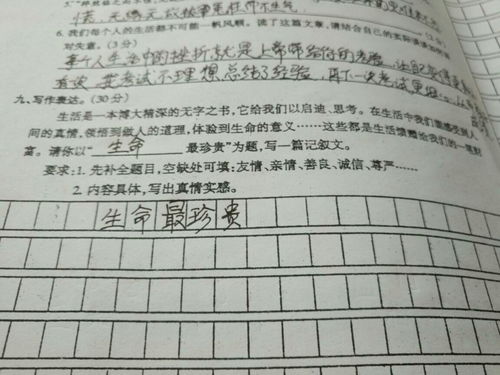 情,无缘无故
6.我们每个人的生活都不可能一帆风顺。读了这篇文章,请结合自己的实际谈谈如何
对失意。(3分)
每个人生活中的挫折就是上帝师给你的考验,让自己变得更
考试不理想总结了经验,再下一次考试更
九、写作表达。(30分)
生活是一本博大精深的无字之书,它给我们以启迪、思考。在生活中我们能感受到人
间的真情,领悟到做人的道理,体验到生命的意义……这些都是生活馈赠给我们的一笔财
富。请你以“生命最珍贵”为题,写一篇记叙文。
要求:1.先补全题目,空缺处可填:友情、亲情、善良、诚信、尊严……
2.内容具体,写出真情实感。
生命最珍贵